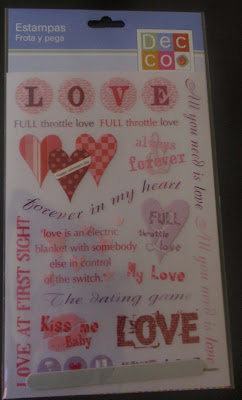 Estampas
Frota y pega
Dec
co
LOVE
FULL throttle love FULL throttle love
always & forever
All you need is love
All you need is love
forever in my heart
FULL
throttle
love
"love is an electric
blanket with somebody
else in control
of the switch."
My Love
The dating game
LOVE AT FIRST SIGHT
Kiss me
Baby
LOVE